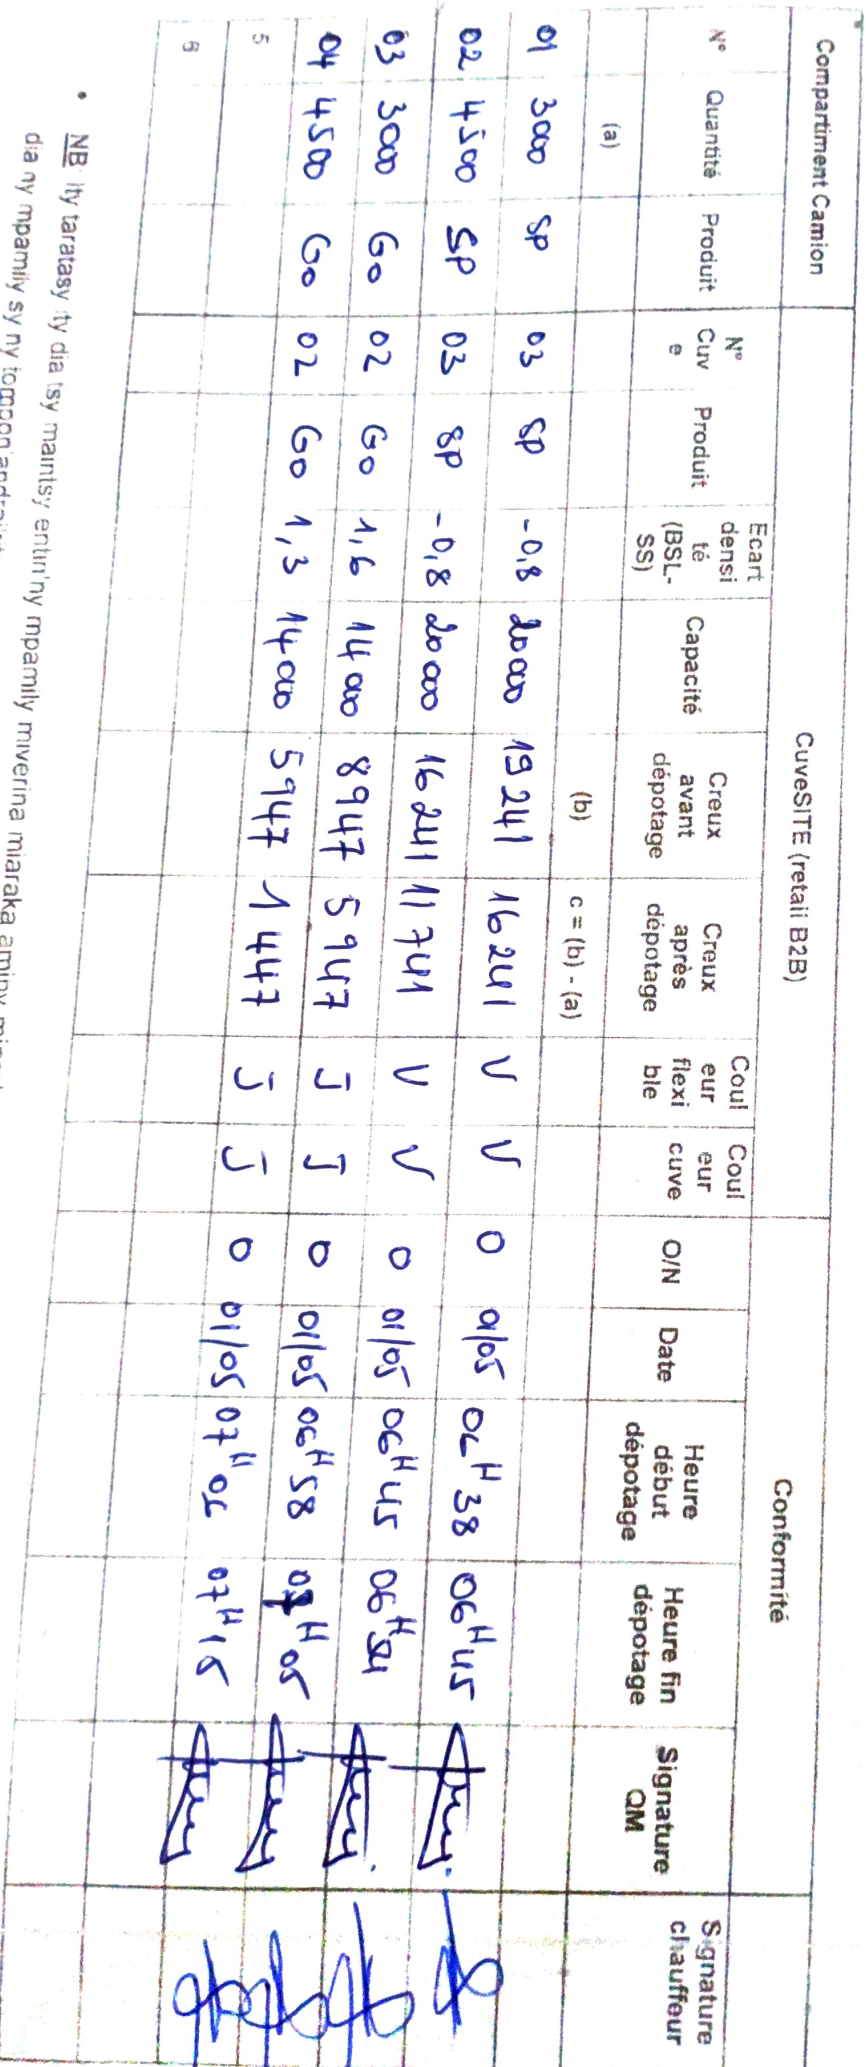 Compartiment Camion CuveSITE (retail B2B) Conformité
N° Quantité Produit N° Cuve Produit Ecart densité (BSL-SS) Capacité Creux avant dépotage Creux après dépotage Couleur flexible Couleur cuve O/N Date Heure début dépotage Heure fin dépotage Signature QM Signature chauffeur
(a) (b) c = (b) - (a)
01 3000 SP 03 SP -0,8 20 000 19 241 16 241 V V O 01/05 06H38 06H45
02 4500 SP 03 SP -0,8 20 000 16 241 11 741 V V O 01/05 06H45 06H54
03 3000 GO 02 GO 1,6 14 000 8947 5947 J J O 01/05 06H58 07H05
04 4500 GO 02 GO 1,3 14 000 5947 1447 J J O 01/05 07H06 07H15
5
6
• NB: Ity taratasy ity dia tsy maintsy entin'ny mpamily miverina miaraka aminy
dia ny mpamily sy ny tompon'andraikitra